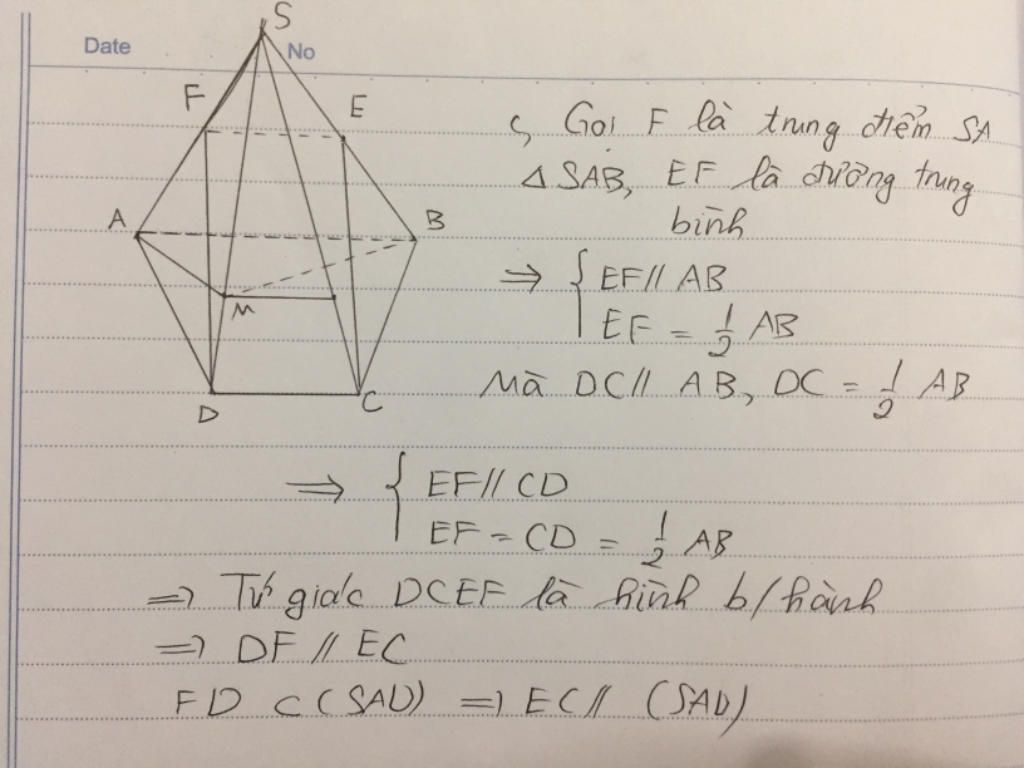 Date
No
S
F
E
A
B
M
D
C
c, Gọi F là trung điểm SA
Δ SAB, EF là đường trung
bình
⇒ { EF // AB
EF = 1/2 AB
Mà DC // AB, DC = 1/2 AB
⇒ { EF // CD
EF = CD = 1/2 AB
⇒ Tứ giác DCEF là hình b/hành
⇒ DF // EC
FD ⊂ (SAD) ⇒ EC // (SAD)